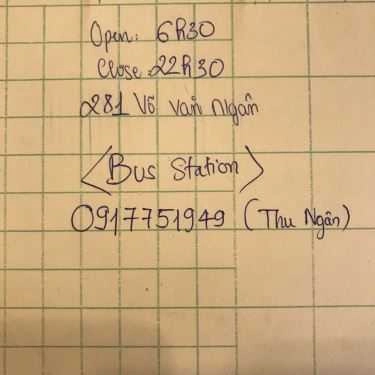 Open: 6h30
Close: 22h30
281 Võ Văn Ngân
<Bus Station>
0917751949 (Thu Ngân)